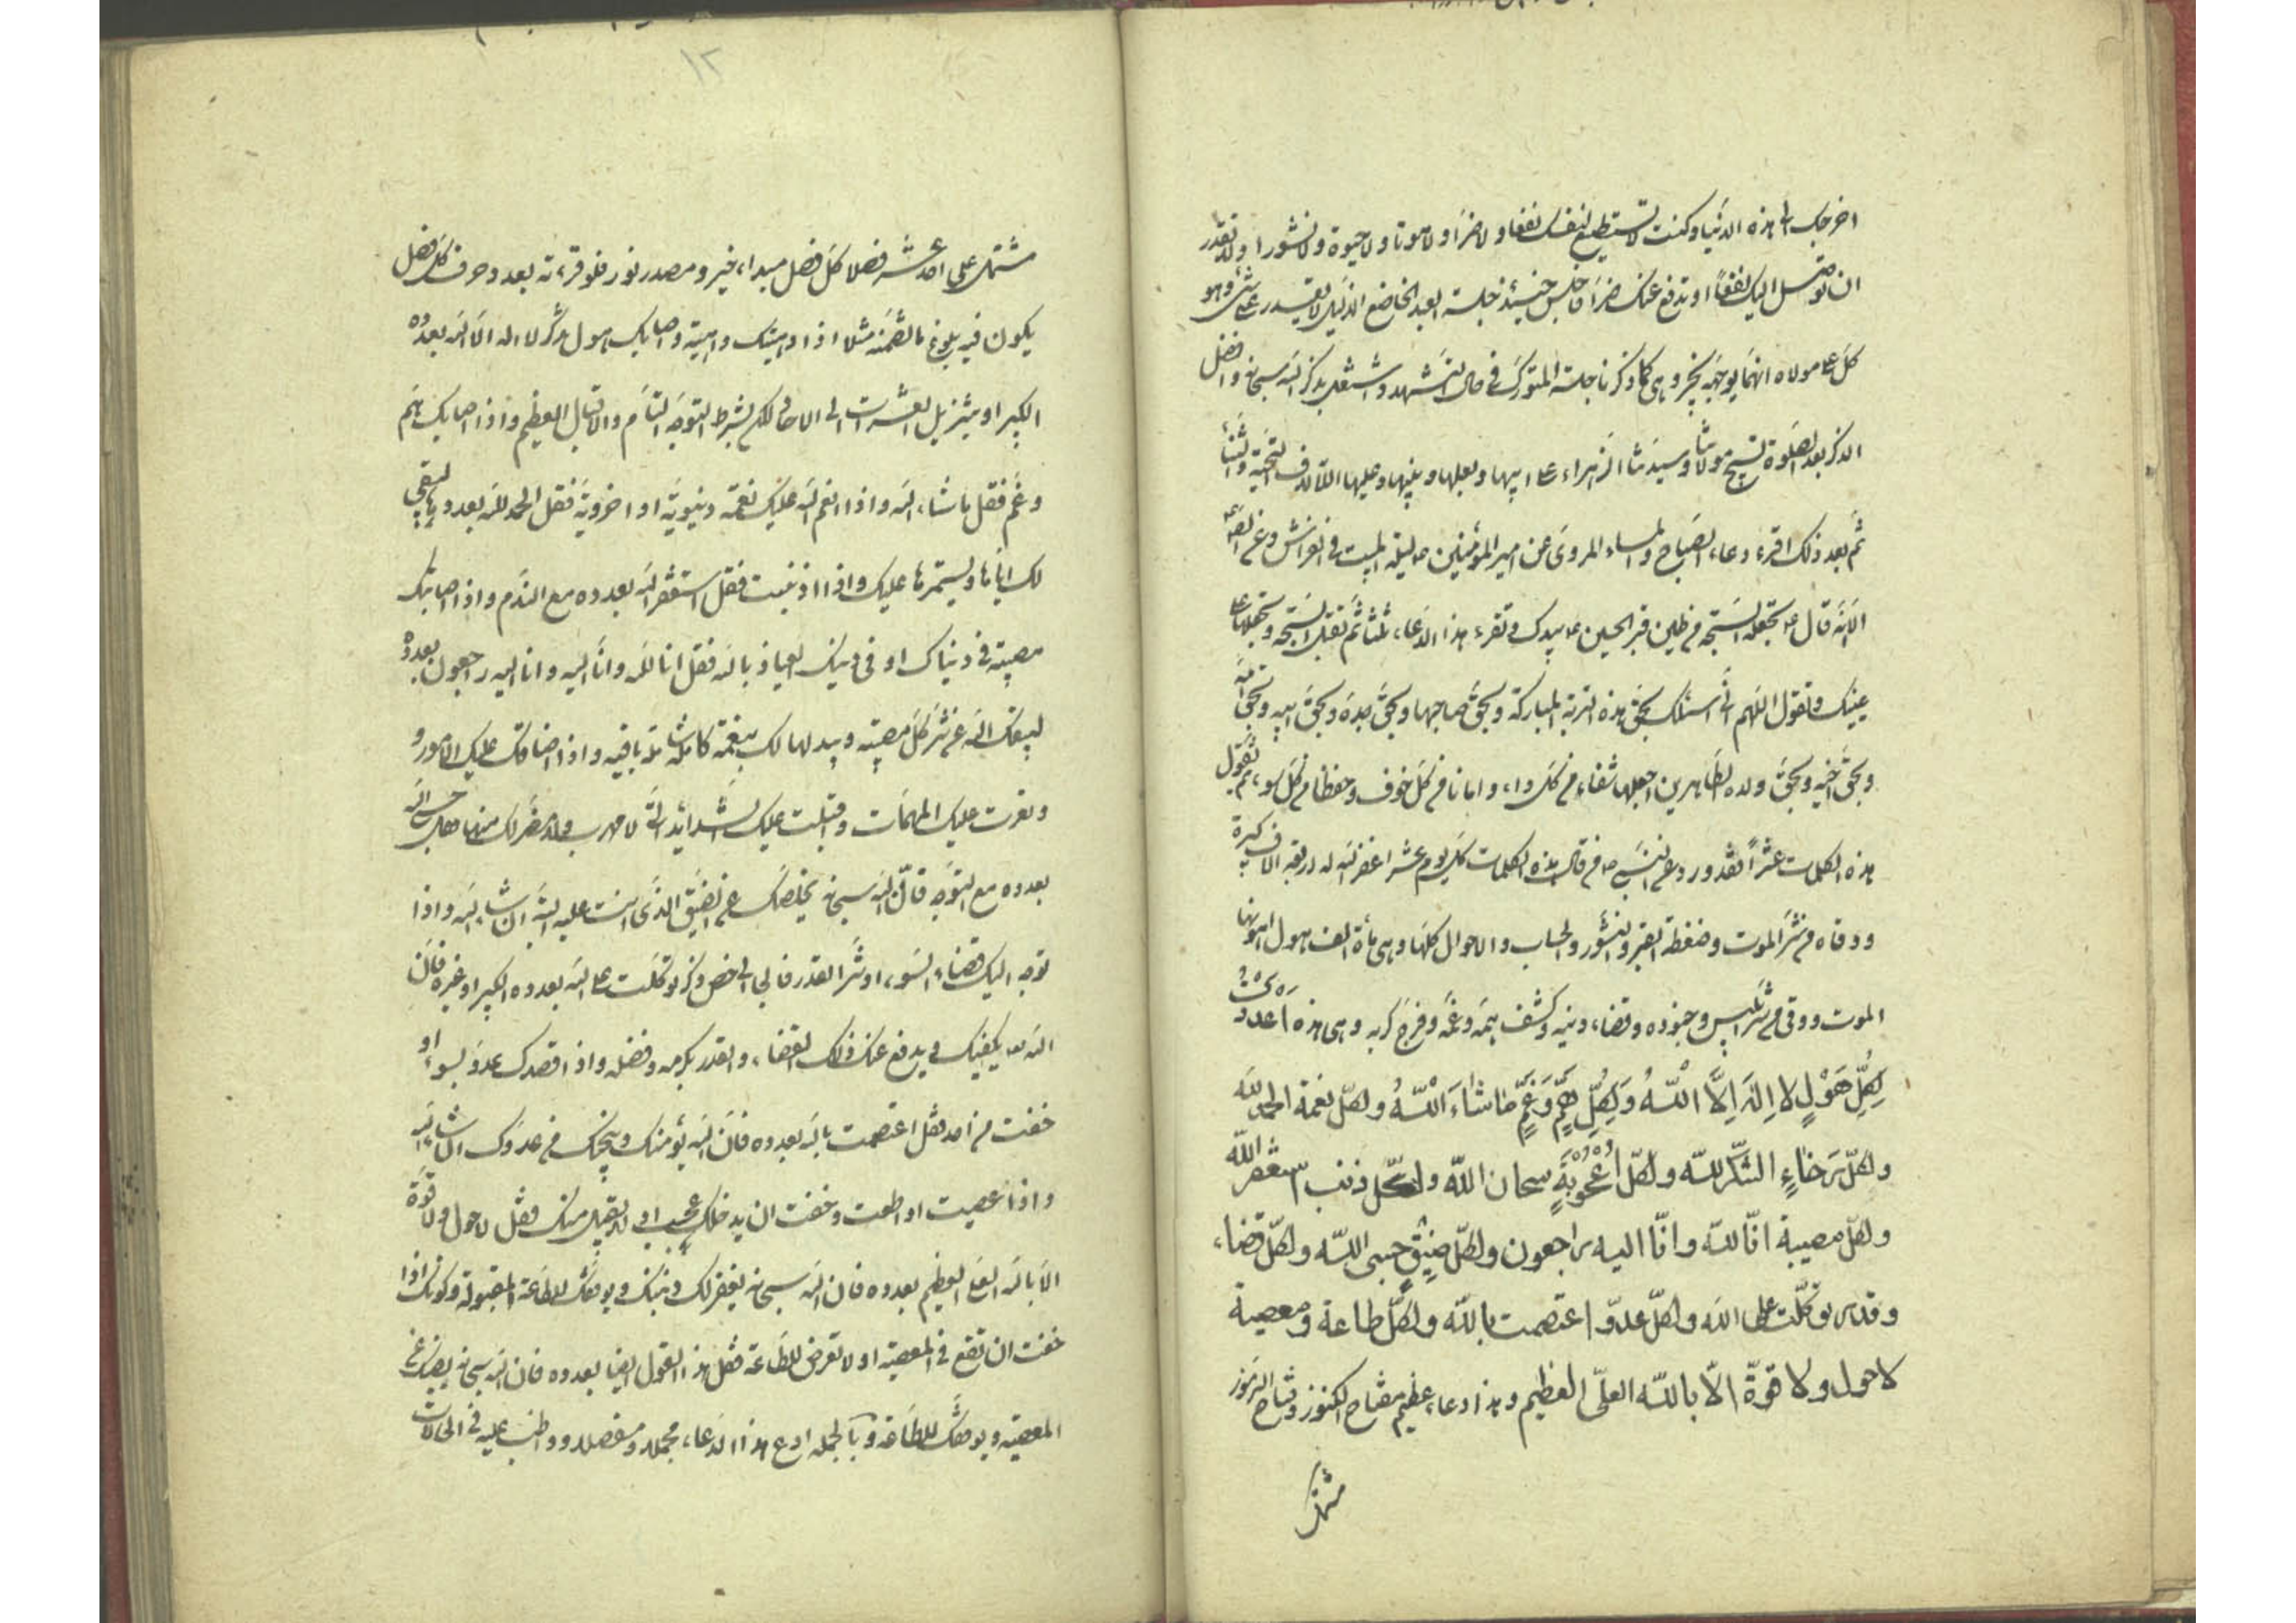 اخرجك الى هذه الدنيا وكنت لا تستطيع لنفسك نفعا ولا ضرا ولا موتا ولا حيوة ولا نشورا ولا تقدر
ان توصل اليك نفعاً او تدفع عنك ضرا فاجلس حينئذ جلسة العبد الخاضع الذليل لا يقدر على شئ وهو
كل على مولاه اينما يوجهه بخير وهى كما ذكرنا جلسة المتورك في حال التشهد واشتغل بذكر الله سبحانه وافضل
الذكر بعد الصلوة تسبيح مولاتنا وسيدتنا الزهراء على ابيها وبعلها وبنيها وعليها الاف التحية والثناء
ثم بعد ذلك اقرء دعاء الصباح والمساء المروى عن امير المؤمنين ع ليلة المبيت في الفراش وعن الص ع
الا انه قال ع تجعل السبحة من طين قبر الحسين ع بيدك وتقرء هذا الدعاء ثلثا ثم تقبل السبحة وتجعلها على
عينيك وتقول اللهم انى اسئلك بحق هذه التربة المباركة وبحق صاحبها وبحق جده وبحق ابيه وبحق امه
وبحق اخيه وبحق ولده الطاهرين اجعلها شفاء من كل داء وامانا من كل خوف وحفظا من كل سوء ثم تقول
هذه الكلمات عشراً فقد ورد عن النبي ص من قال هذه الكلمات كل يوم عشرا غفر الله له اربعة الاف كبيرة
ووقاه من شر الموت وضغطة القبر والنشور والحساب والاهوال كلها وهى مأة الف هول اهونها
الموت ووقى من شر ابليس وجنوده وقضاء دينه وكشف همه وغمه وفرج كربه وهى هذه اعددت
لِكُلِّ هَوْلٍ لا اِلهَ اِلَّا اللّهُ وَلِكُلِّ هَمٍّ وَغَمٍّ ماشاءَ اللّهُ ولكلّ نعمة الحمد لله
ولكلّ رخاءٍ الشكر للّه ولكلّ اُعْجُوبَةٍ سبحان اللّه ولكلّ ذنب استغفر اللّه
ولكلّ مصيبة انّا للّه وانّا اليه راجعون ولكلّ ضيقٍ حسبى اللّه ولكلّ قضاء
وقدر توكّلت على اللّه ولكلّ عدوّ اعتصمت باللّه ولكلّ طاعة ومعصية
لا حول ولا قوّة الّا باللّه العلىّ العظيم وهذا دعاء عظيم مفتاح الكنوز وفتاح الرموز
مشتمل
١٢
مشتمل على احد عشر فضلا كل فضل مبداء خير ومصدر نور فلو قرءته بعدد حروف كل فضل
يكون فيه بلوغ ما تضمنه مثلا اذا دهيتك داهية واصابك هول فاذكر لا اله الا الله بعدده
الكبير او بتنزيل العشرات الى الاحاد لكن بشرط التوجه التام والاقبال العظيم واذا اصابك هم
وغم فقل ما شاء الله واذا انعم الله عليك نعمة دنيوية او اخروية فقل الحمد لله بعدده يبقى
لك اياها ويستمرها عليك واذا اذنبت فقل استغفر الله بعدده مع الندم واذا اصابتك
مصيبة في دنياك او في دينك العياذ بالله فقل انا لله وانا اليه راجعون بعدده
ليقيك الله عن شر كل مصيبة ويبدلها لك بنعمة كاملة شاملة باقية واذا ضاقت عليك الامور و
وتعرت عليك المهمات واقبلت عليك الشدائد التي لا مهرب ولا مفر لك منها فقل حسبى الله
بعدده مع التوجه فان الله سبحانه يخلصك عن الضيق الذى انت عليه البتة ان شاء الله واذا
توجه اليك قضاء السوء او شر القدر فالجا الى خصوص ذكر توكلت على الله بعدده الكبير او غيره فان
الله تع يكفيك ويدفع عنك ذلك القضاء والقدر بكرمه وفضله واذا قصدك عدو بسوء او
خفت من احد فقل اعتصمت بالله بعدده فان الله يؤمنك وينجيك من عدوك ان شاء الله
واذا عصيت او اطعت وخفت ان يدخلك عجب او لا يقبل منك فقل لا حول ولا قوة
الا بالله العلى العظيم بعدده فان الله سبحانه يغفر لك ذنبك ويوفقك للطاعة المقبولة وكذلك اذا
خفت ان تقع في المعصية او لا تعرض للطاعة فقل هذا القول ايضا بعدده فان الله سبحانه يصونك عن
المعصية ويوفقك للطاعة وبالجملة ادع هذا الدعاء مجملا ومفصلا وواظب عليه في الحالات